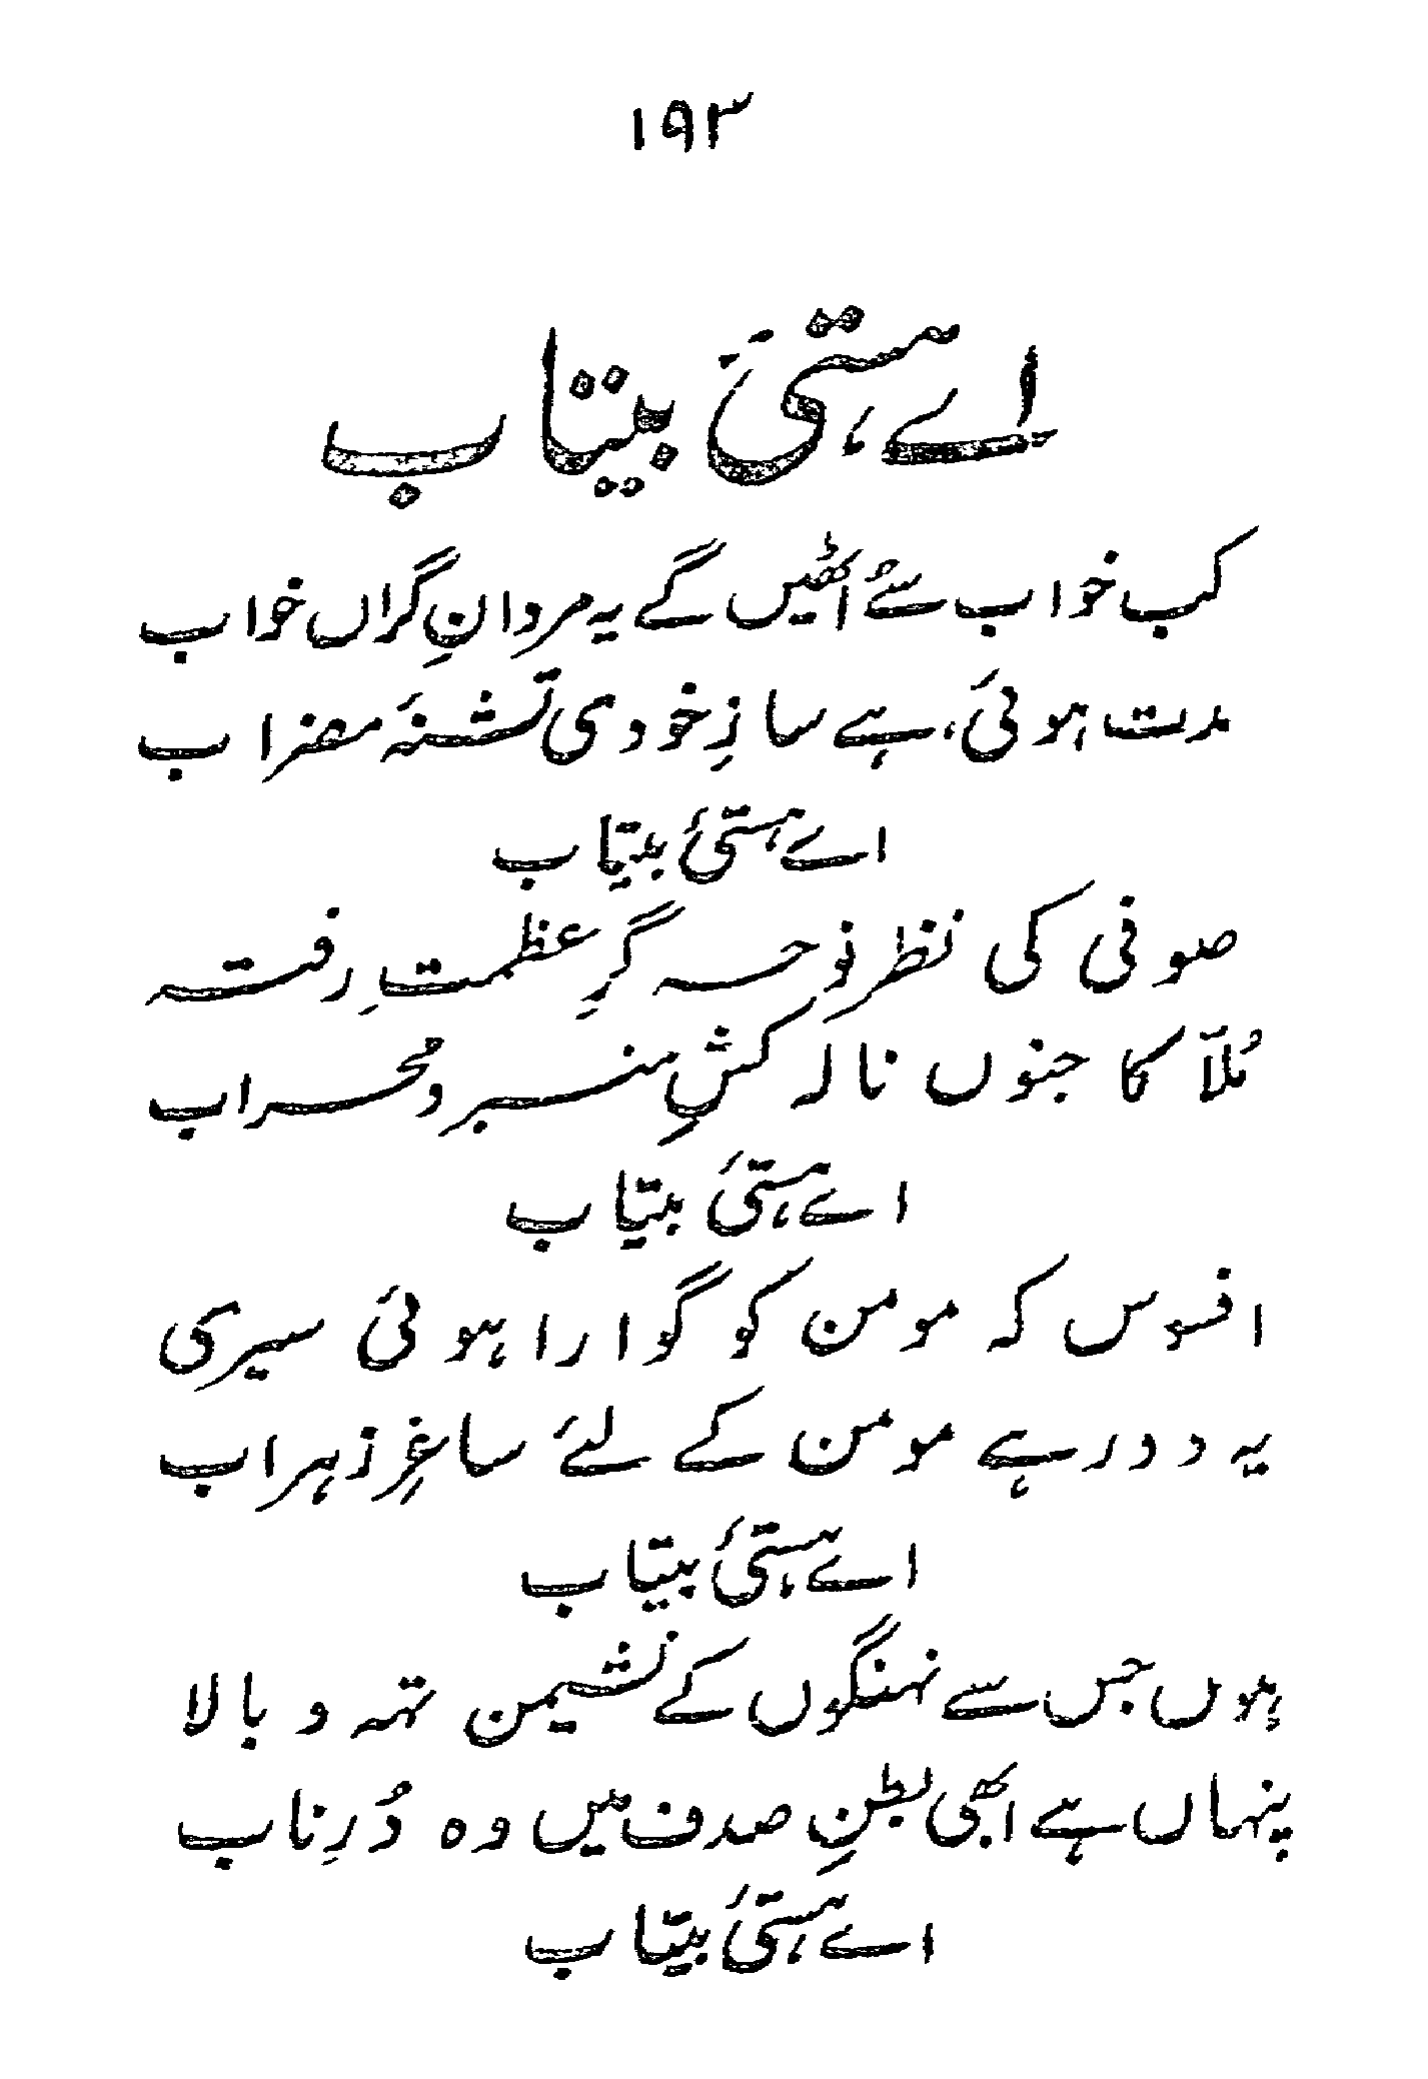 ۱۹۳
اے ہستئ بیتاب
کب خواب سے اُٹھیں گے یہ مردانِ گراں خواب
مدت ہوئی، ہے سازِ خودی تشنۂ مضراب
اے ہستئ بیتاب
صوفی کی نظر نوحہ گرِ عظمتِ رفتہ
مُلّا کا جنوں نالہ کشِ منبر و محراب
اے ہستئ بیتاب
افسوس کہ مومن کو گوارا ہوئی سیری
یہ دور ہے مومن کے لئے ساغرِ زہراب
اے ہستئ بیتاب
ہوں جس سے نہنگوں کے نشیمن تہہ و بالا
پنہاں ہے ابھی بطنِ صدف میں وہ دُرِ ناب
اے ہستئ بیتاب